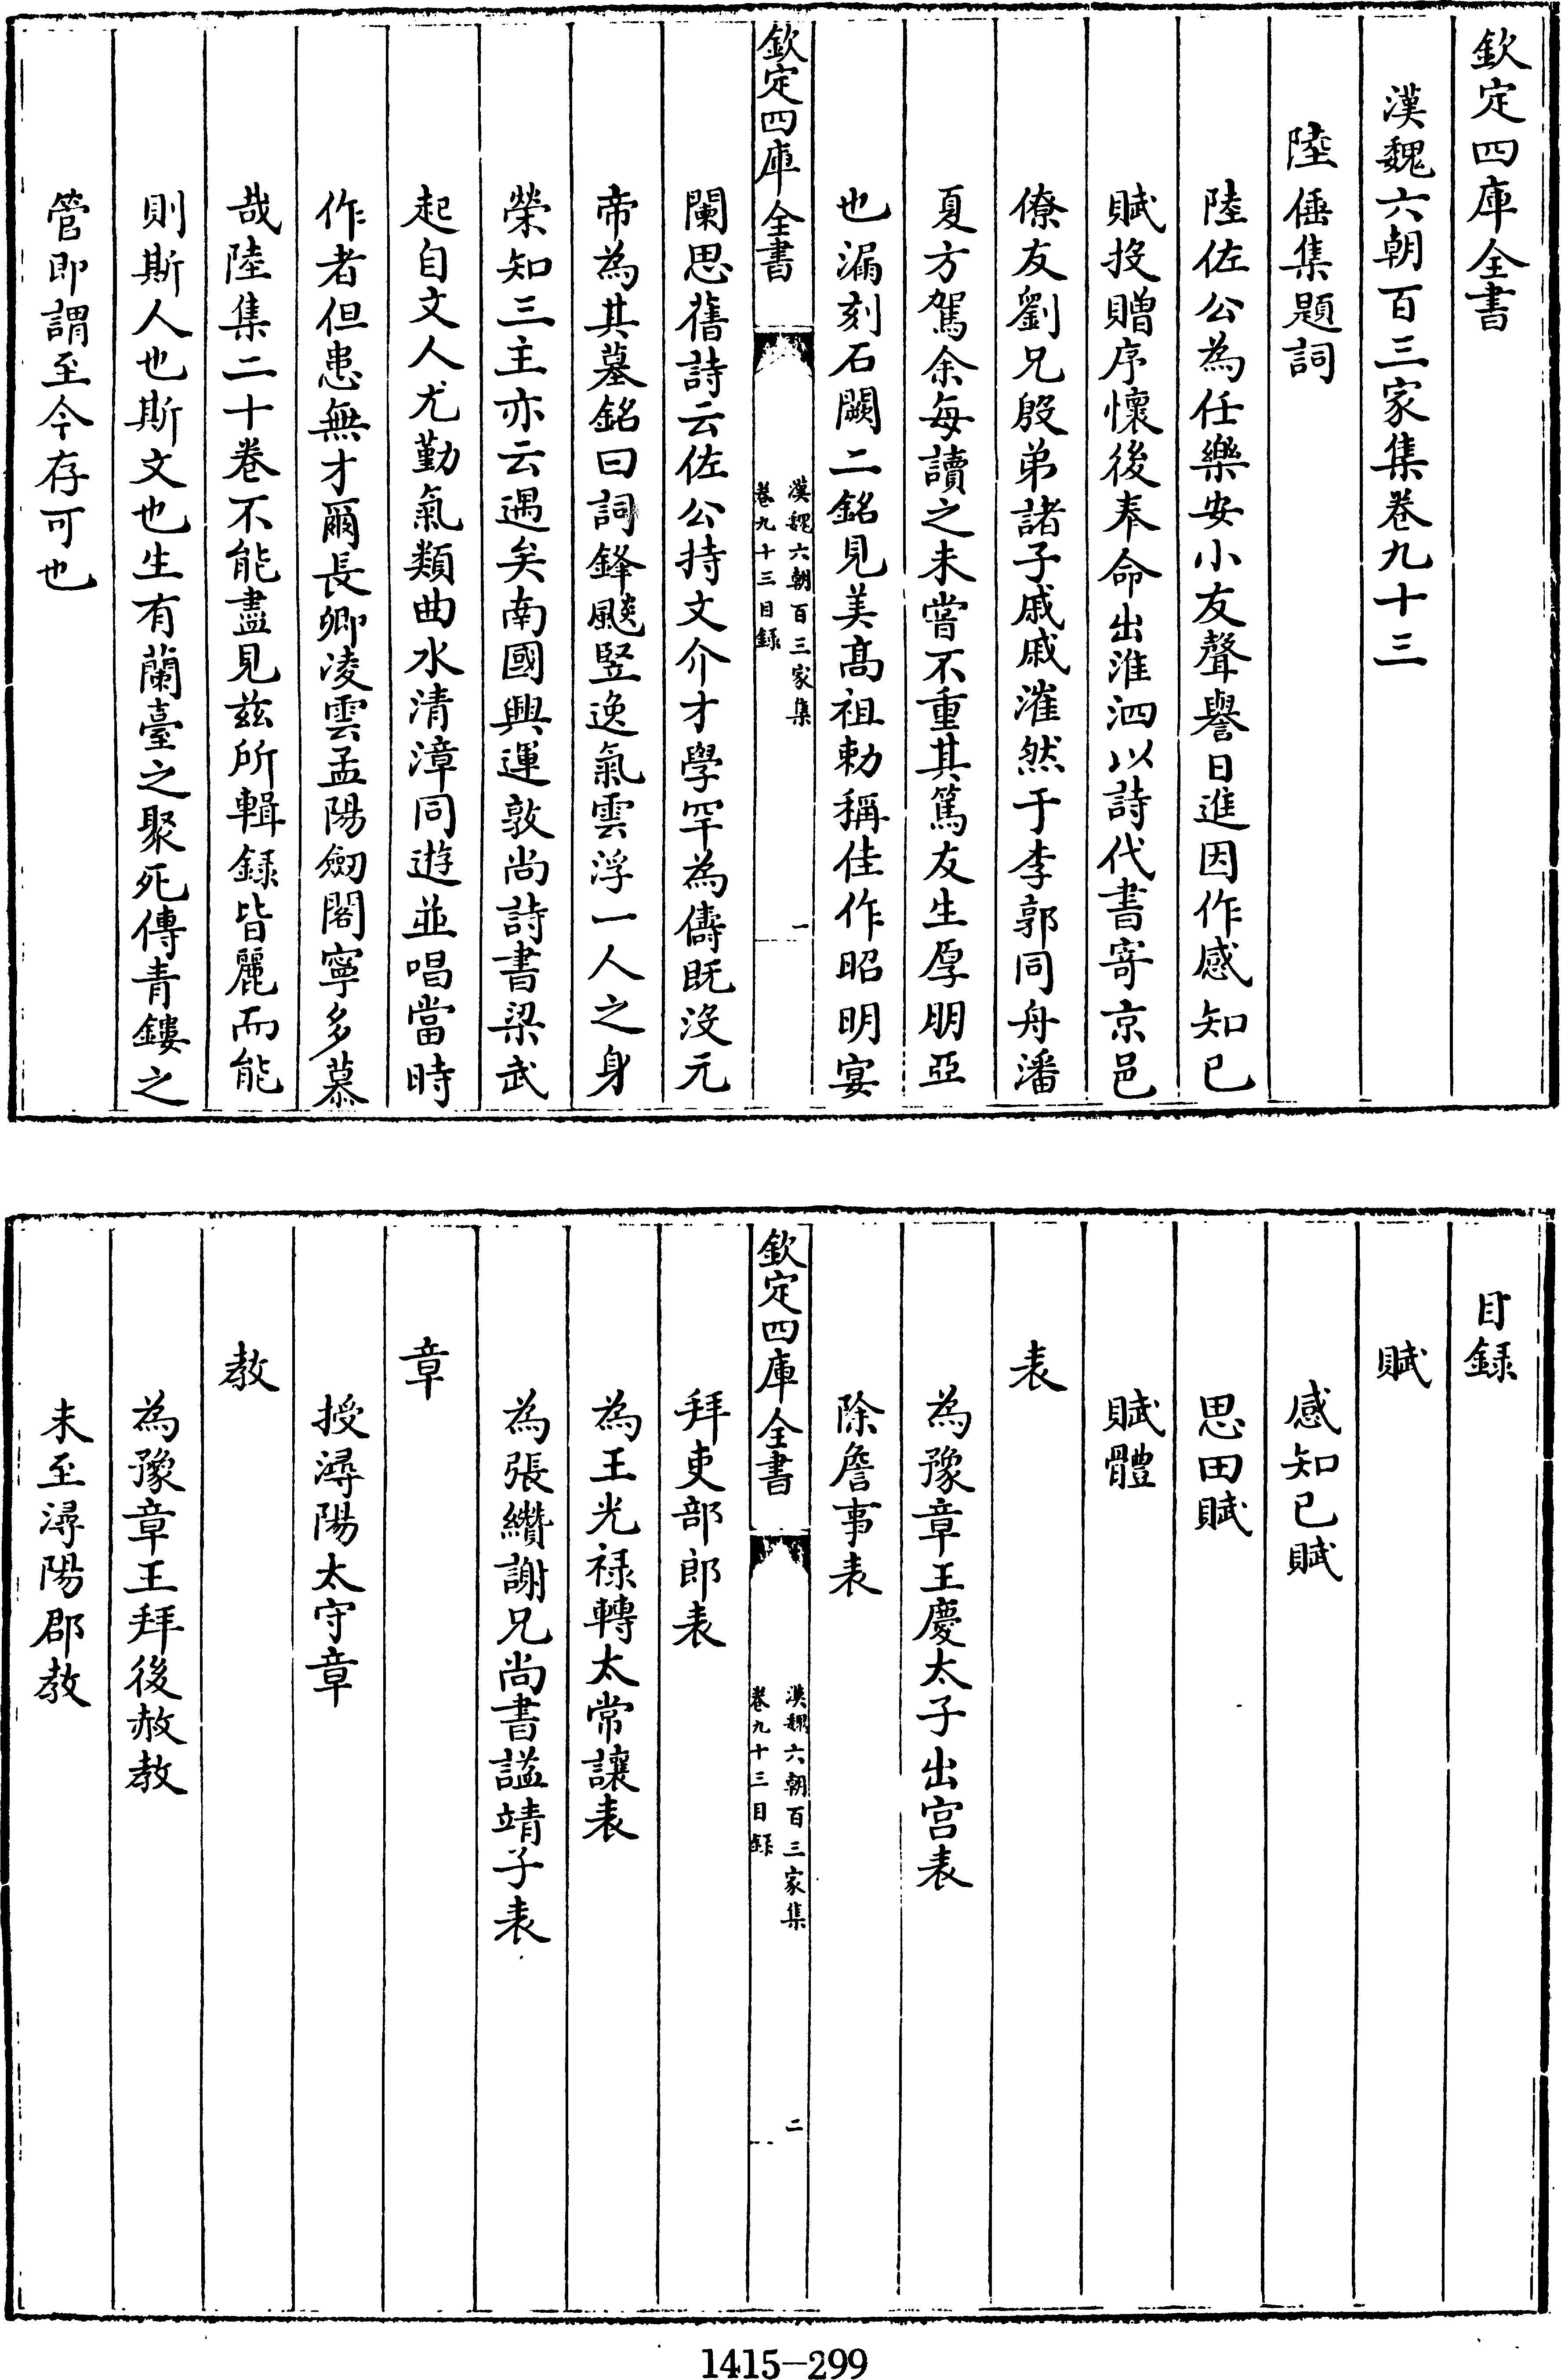 欽定四庫全書
漢魏六朝百三家集卷九十三
陸倕集題詞
陸佐公為任樂安小友聲譽日進因作感知已
賦投贈序懷後奉命出淮泗以詩代書寄京邑
僚友劉兄殷弟諸子戚戚漼然于李郭同舟潘
夏方駕余每讀之未嘗不重其篤友生厚朋亞
也漏刻石闕二銘見美髙祖勅稱佳作昭明宴
欽定四庫全書
漢魏六朝百三家集
卷九十三目録
一
闌思舊詩云佐公持文介才學罕為儔既沒元
帝為其墓銘曰詞鋒飈竪逸氣雲浮一人之身
榮知三主亦云遇矣南國興運敦尚詩書梁武
起自文人尤勤氣類曲水清漳同遊並唱當時
作者但患無才爾長卿凌雲孟陽劒閣寧多慕
哉陸集二十卷不能盡見兹所輯録皆麗而能
則斯人也斯文也生有蘭臺之聚死傳青鏤之
管即謂至今存可也
目録
賦
感知已賦
思田賦
賦體
表
為豫章王慶太子出宫表
除詹事表
欽定四庫全書
漢魏六朝百三家集
卷九十三目録
二
拜吏部郎表
為王光禄轉太常讓表
為張纘謝兄尚書諡靖子表
章
授潯陽太守章
教
為豫章王拜後赦教
未至潯陽郡教
1415-299